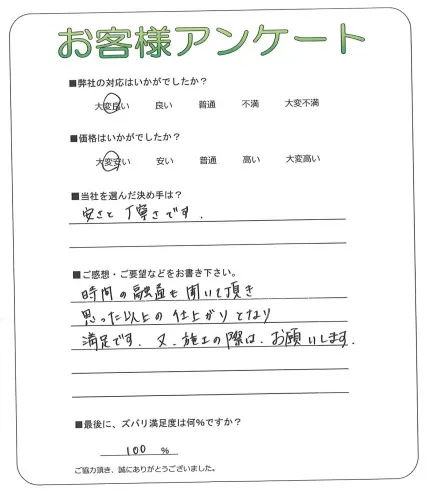 お客様アンケート
■弊社の対応はいかがでしたか？
大変良い 良い 普通 不満 大変不満
■価格はいかがでしたか？
大変安い 安い 普通 高い 大変高い
■当社を選んだ決め手は？
安さと丁寧さです.
■ご感想・ご要望などをお書き下さい。
時間の融通も聞いて頂き
思った以上の仕上がりとなり
満足です. 又. 施工の際は. お願いします.
■最後に、ズバリ満足度は何%ですか？
100 %
ご協力頂き、誠にありがとうございました。